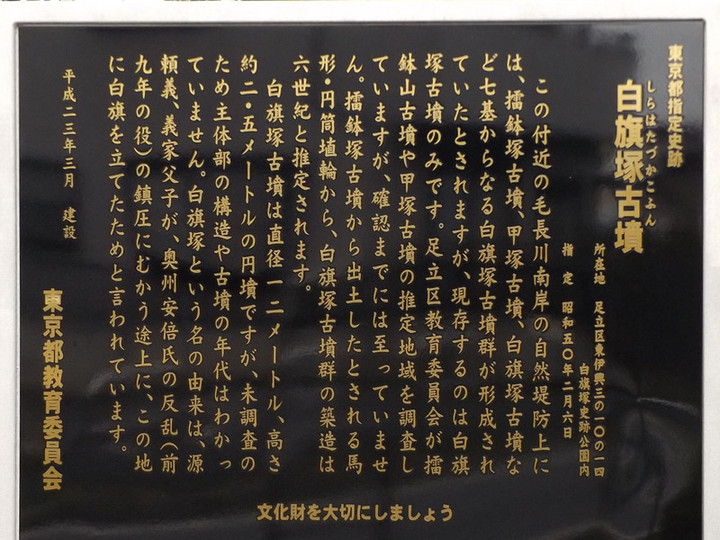 東京都指定史跡
しらはたづかこふん
白旗塚古墳
所在地 足立区東伊興三の一〇の一四
白旗塚史跡公園内
指定 昭和五〇年二月六日
この付近の毛長川南岸の自然堤防上に
は、擂鉢塚古墳、甲塚古墳、白旗塚古墳な
ど七基からなる白旗塚古墳群が形成され
ていたとされますが、現存するのは白旗
塚古墳のみです。足立区教育委員会が擂
鉢山古墳や甲塚古墳の推定地域を調査し
ていますが、確認までには至っていませ
ん。擂鉢塚古墳から出土したとされる馬
形・円筒埴輪から、白旗塚古墳群の築造は
六世紀と推定されます。
白旗塚古墳は直径一二メートル、高さ
約二・五メートルの円墳ですが、未調査の
ため主体部の構造や古墳の年代はわかっ
ていません。白旗塚という名の由来は、源
頼義、義家父子が、奥州安倍氏の反乱(前
九年の役)の鎮圧にむかう途上に、この地
に白旗を立てたためと言われています。
平成二三年三月 建設
東京都教育委員会
文化財を大切にしましょう